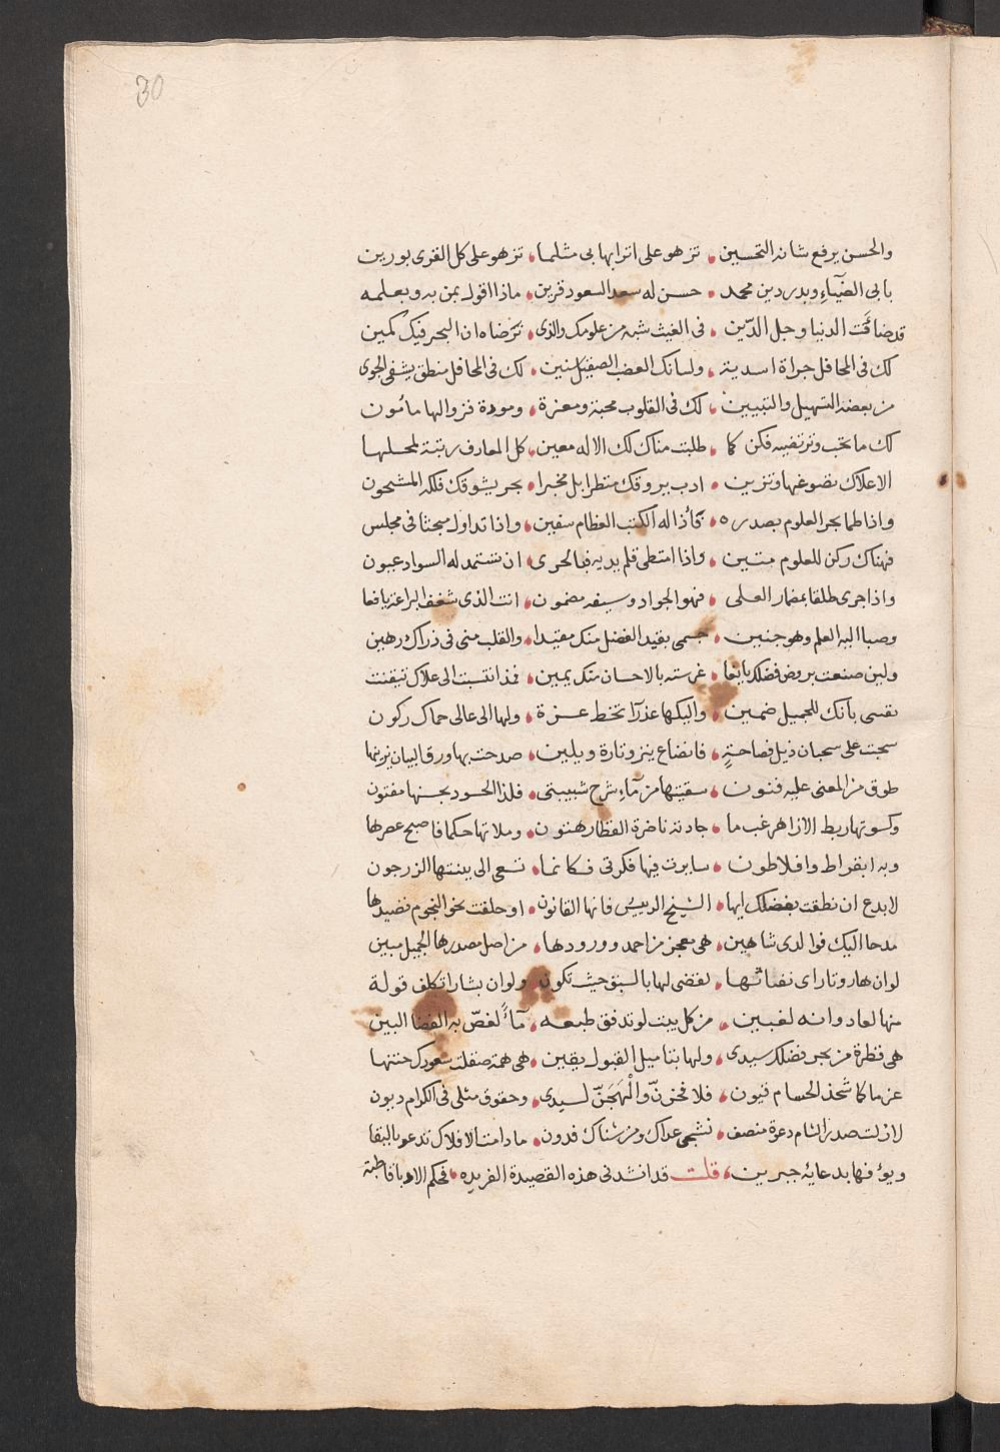 30
والحسن يرفع شانه التحسين • تزهو على اترابها بى مثلما • تزهو على كل القرى بورين
بابى الضيآء وبدر دين محمد • حسن له سعد السعود قرين • ماذا اقول بمن به وبعلمه
قد ضاءَت الدنيا وجل الدّين • فى الغيث شبه من علومك والذى • ترضاه ان البحر فيك كمين
لك فى المحافل جراة اسدية • ولسانك العضب الصقيل سنين • لك فى المحافل منطق يشفى الجوى
من بعضه التسهيل والتبيين • لك فى القلوب محبة ومعزة • ومودة فزوالها مامٔون
لك ما تحب وترتضيه فكن كما • طلبت مناك لك الاله معين • كل المعارف رتبة لمحلها
الاعلاك نضوغها وتزين • ادب يروقك منظرا بل مخبرا • بحر يشوقك فلكه المشحون
واذا طما بحر العلوم بصدره • فأذا له الكتب العظام سفين • واذا تداول مبحثا فى مجلس
فهناك ركن للعلوم متين • واذا امتطى قلم يديه فبالحرى • ان تستمد له السواد عيون
واذا جرى طلقا بمضمار العلى • فهو الجواد وسيفه مضمون • انت الذى شغف البراعة يافعا
وصبا اليه العلم وهو جنين • جسمى بقيد الفضل منك مقيدا • والقلب منى فى ذراك رهين
ولين صنعت بروض فضلك يانعا • غرسته بالاحسان منك يمين • فمذ انتسبت الى علاك تيقنت
نفسى بأنك للجميل ضمين • واليكها عذرآ تخطر عزة • ولها الى عالى حماك ركون
سحبت على سحبان ذيل فصاحةٍ • فانصاع ينزو تارة ويلين • صدحت بها ورق البيان يزينها
طوق من المعنى عليه فنون • سقيتها من مآء شرح شبيبتى • فلذا الحسود بحسنها مفتون
وكسوتها ربط الازاهر غب ما • جادته ناضرة القطار هتون • وملاتها حكما فاصبح عصرها
وبه ابقراط وافلاطون • سايرت فيها فكرتى فكانما • تسعى الى بينتها الزرجون
لا بدع ان نطقت بفضلك ايها • الشيخ الرييس فانها القانون • او حلقت نحو النجوم نضيدها
مدحا اليك فوا لدى شاهين • هى معجز من احمد وورودها • من اصل مصدرها الجميل مبين
لو ان هاروتا راى نفثاتها • لقضى لها بالسبق حيث تكون • ولو ان بشارا تكلف قولة
منها لعاد وانه لغبين • من كل بيت لو تدفق طبعه • مآءً لغصّ به الفضا البين
هى قطرة من بحر فضلك سيدى • ولها بتاميل القبول يقين • هى همة صقلت سعودك حنتها
عزما كما شحذ الحسام قيون • فلا فخرنّ والْهَجَنّ لسيدى • وحقوق مثلى فى الكرام ديون
لا زلت صدر الشام دعوة منصف • نشجى عداك ومن شناك قدون • مادامت الافلاك تدعو بالبقا
ويؤفها بدعايه جبرين • قلت قد انشدنى هذه القصيدة الفريده • فحكم الادبا قاطبة